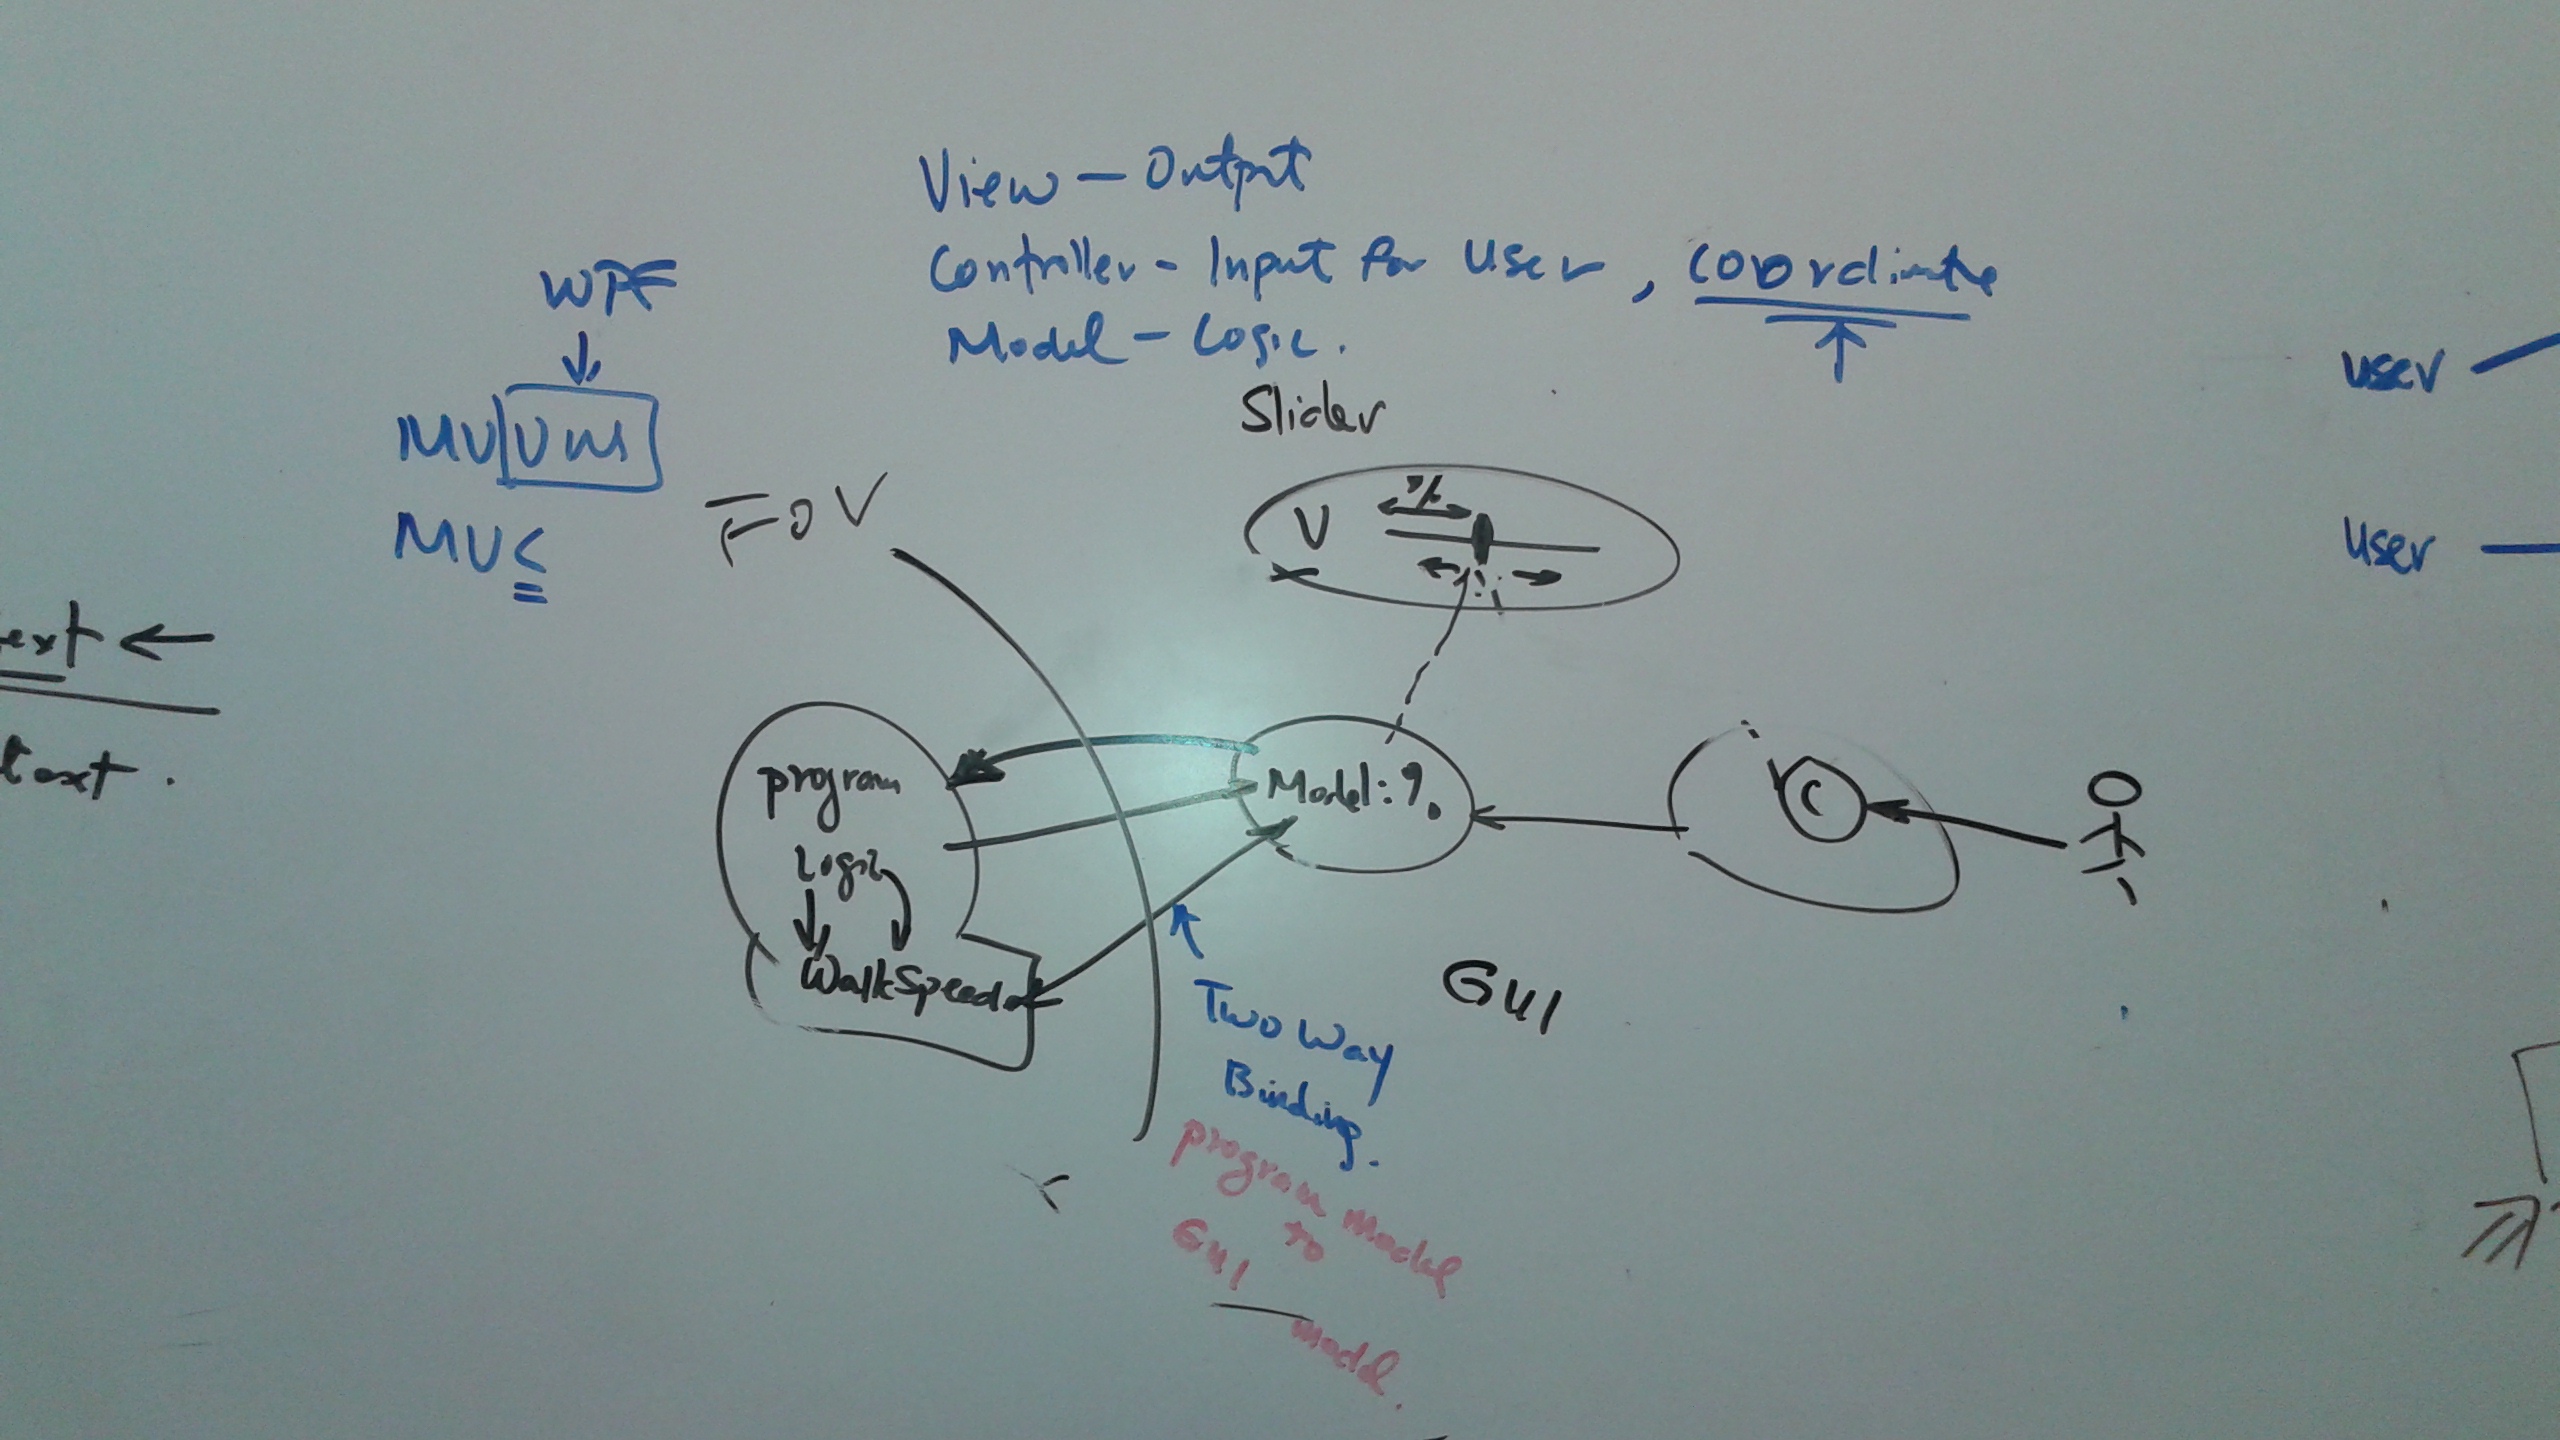 View - Output
Controller - Input for User, Coordinate
Model - Logic.
WPF
MVVM
MVC
Slider
FOV
V
%
user
user
ext
text.
program
Logic
WalkSpeed
Model: 9.
C
GUI
Two Way
Binding.
program Model
to
GUI
Model.